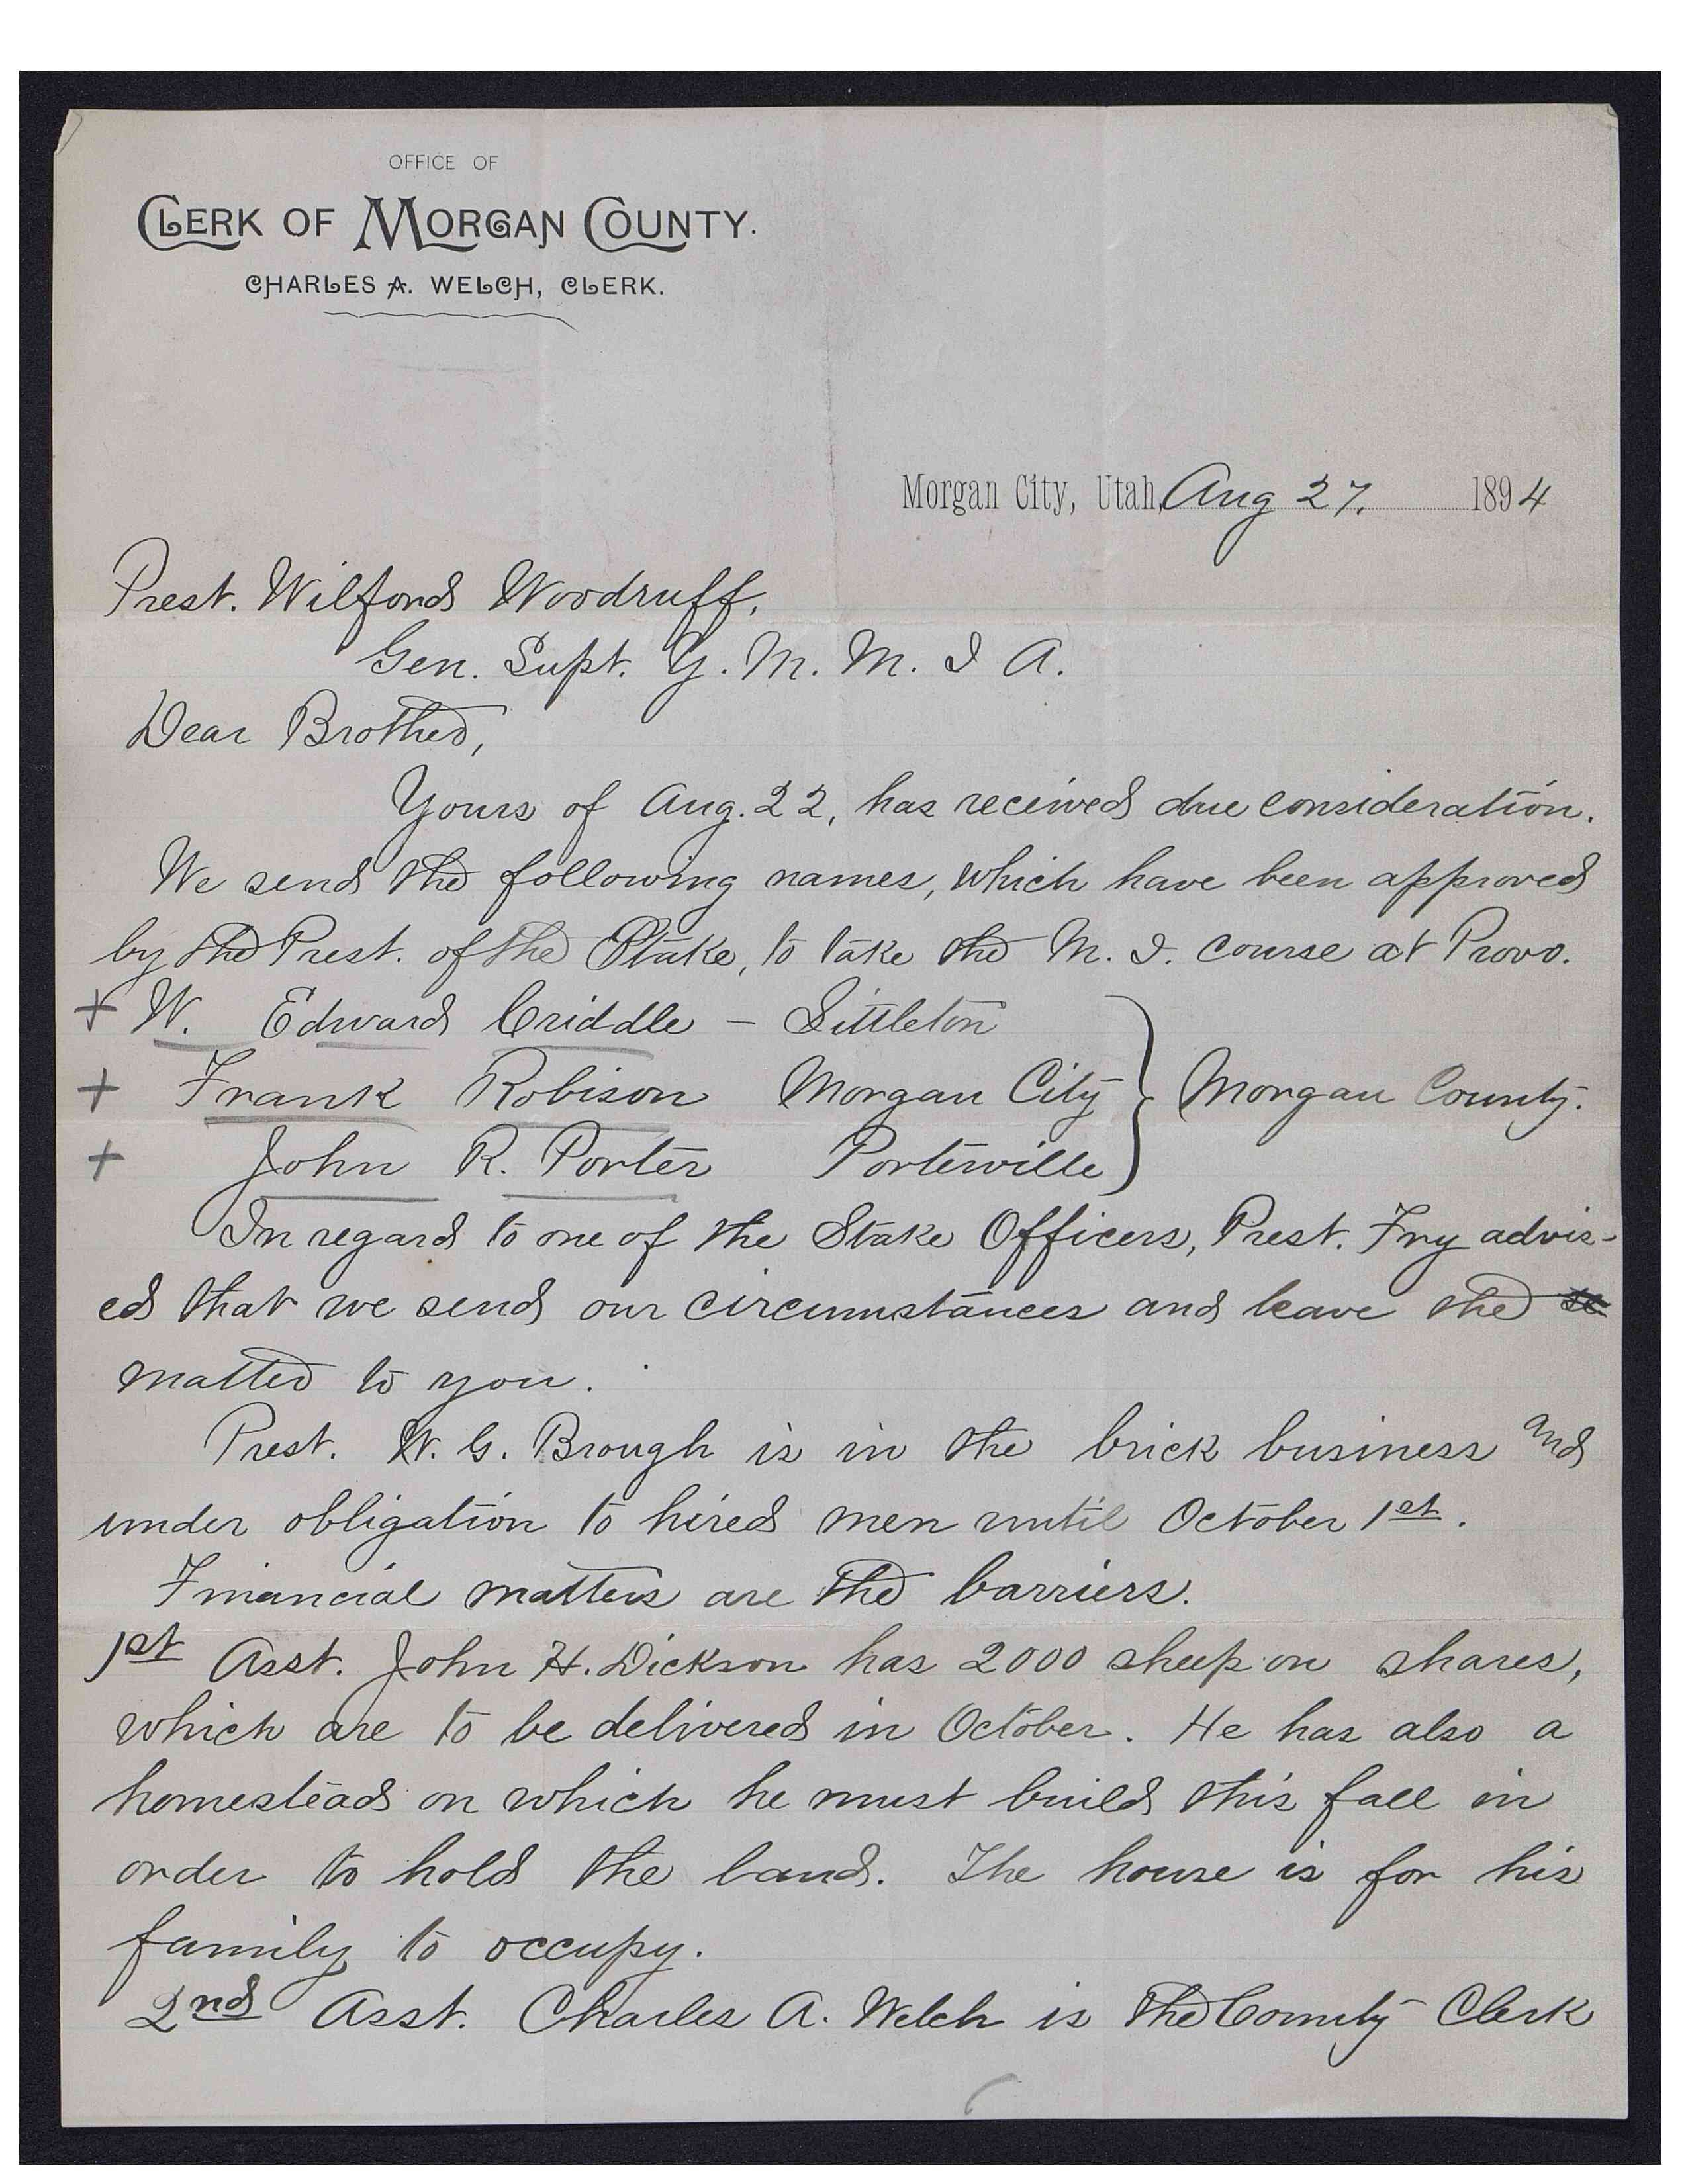 OFFICE OF
CLERK OF MORGAN COUNTY.
CHARLES A. WELCH, CLERK.
Morgan City, Utah, Aug 27. 1894
Prest. Wilford Woodruff,
Gen. Supt. Y. M. M. I A.
Dear Brother,
Yours of Aug. 22, has received due consideration.
We send the following names, which have been approved
by the Prest. of the Stake, to take the M. I. course at Provo.
+ W. Edward Criddle - Littleton
+ Frank Robison Morgan City } Morgan County.
+ John R. Porter Porterville
In regard to one of the Stake Officers, Prest. Fry advis-
ed that we send our circumstances and leave the
matter to you.
Prest. W. G. Brough is in the brick business and
under obligation to hired men until October 1st.
Financial matters are the barriers.
1st Asst. John H. Dickson has 2000 sheep on shares,
which are to be delivered in October. He has also a
homestead on which he must build this fall in
order to hold the land. The house is for his
family to occupy.
2nd Asst. Charles A. Welch is the County Clerk